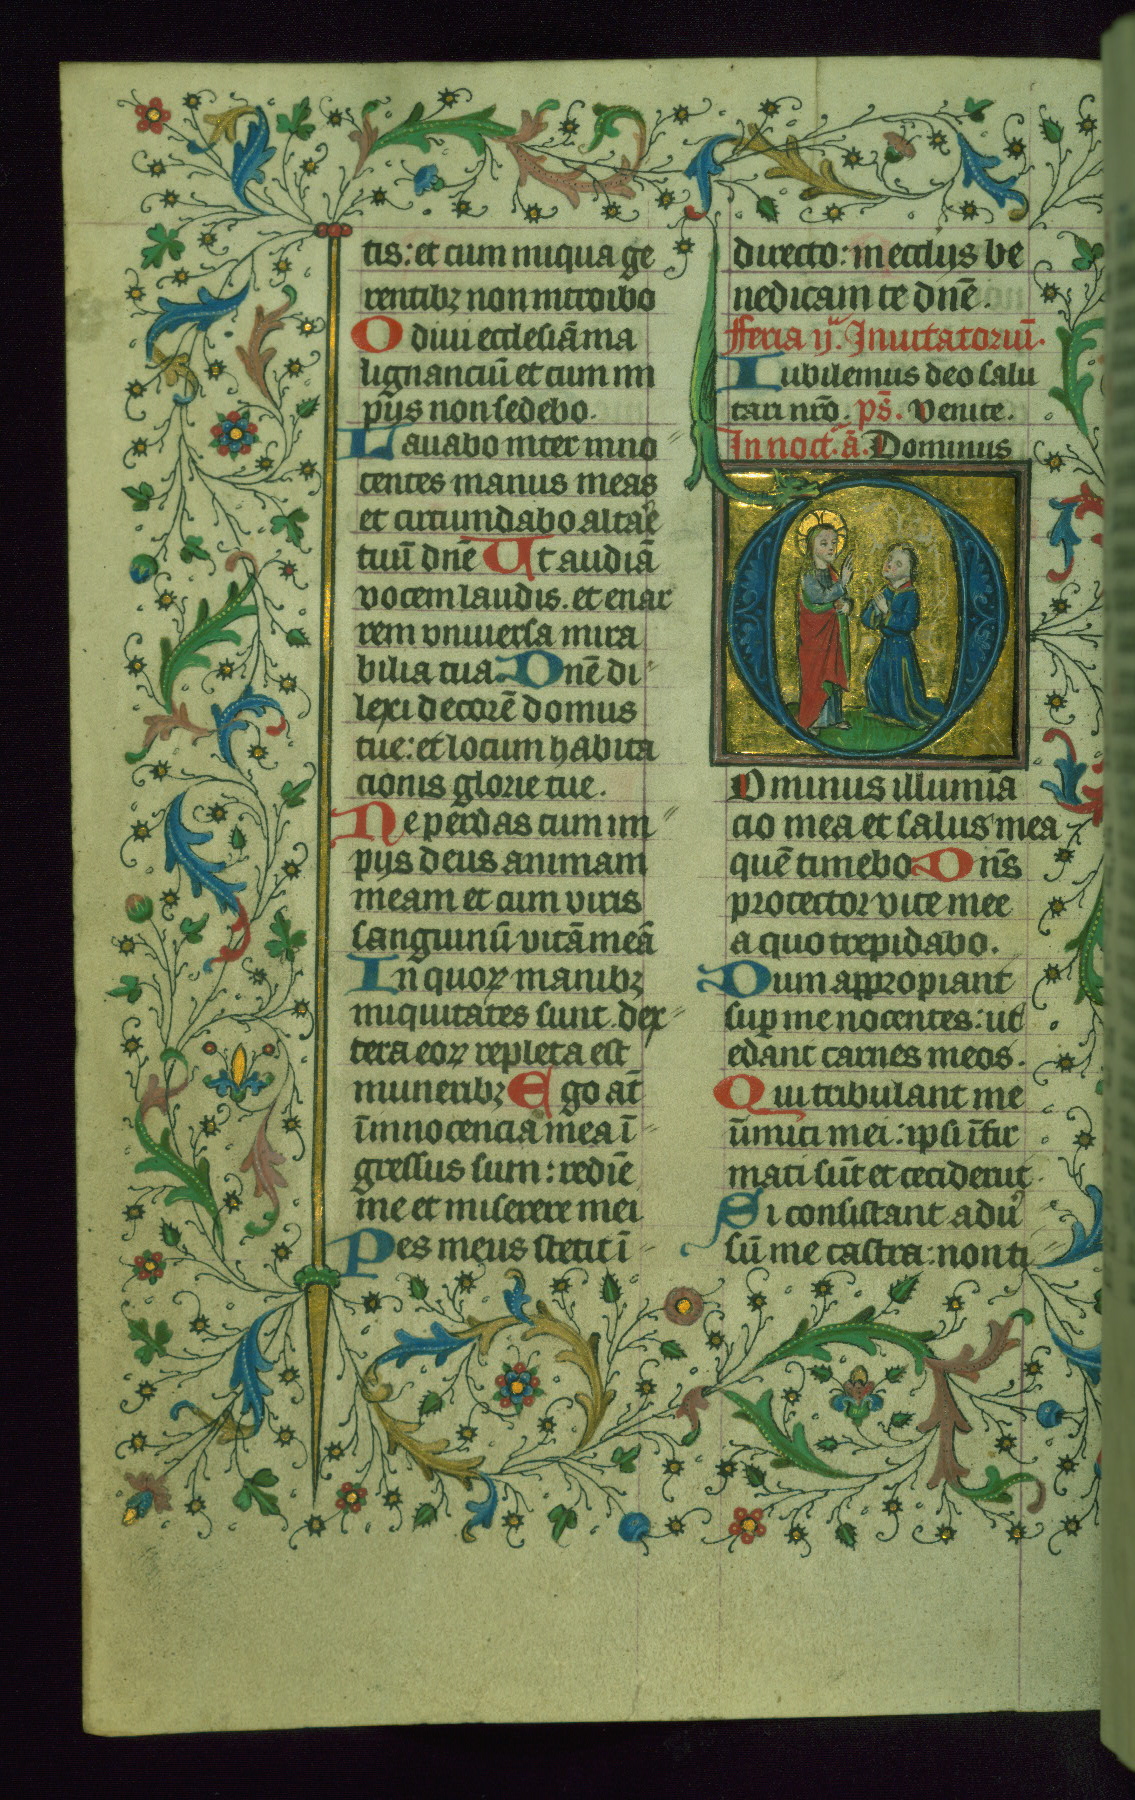 tis: et cum iniqua ge
rentibꝫ non introibo
Odiui ecclesiā ma
lignanciū et cum im
pijs non sedebo.
Lauabo inter inno
centes manus meas
et circumdabo altare
tuū dn̄e Ut audiā
vocem laudis. et enar
rem vniuersa mira
bilia tua. Dn̄e di
lexi decorē domus
tue: et locum habita
cionis glorie tue.
Ne perdas cum im
pijs deus animam
meam et cum viris
sanguinū vitā meā
In quoꝝ manibꝫ
iniquitates sunt. dex
tera eoꝝ repleta est
muneribꝫ Ego aūt
ī innocencia mea ī
gressus sum: redīe
me et miserere mei
Pes meus stetit ī
directo: in ecclijs be
nedicam te dn̄e.
Feria ij.ª Inuitatoriū.
Iubilemus deo salu
tari nr̄o. ps̄. Venite.
In noct. ā. Dominus
Dominus illumīa
cio mea et salus mea
quē timebo Dn̄s
protector vite mee
a quo trepidabo.
Dum appropiant
suꝑ me nocentes: ut
edant carnes meas.
Qui tribulant me
īimici mei: ipsi īfir
mati sūt et ceciderūt.
Si consistant aduer
sū me castra: non ti